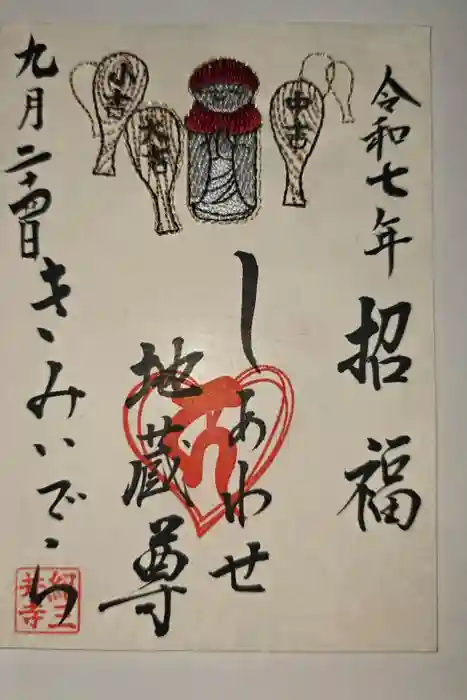 令和七年
招福
しあわせ
地蔵尊
九月二十四日
きみいでら
小吉
大吉
中吉
紀三
井寺